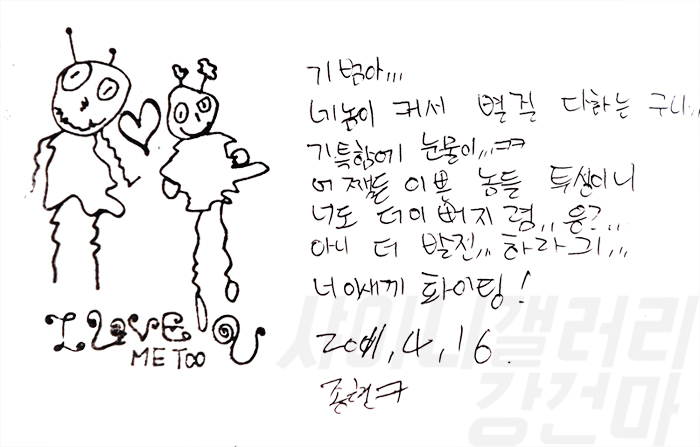 I LOVE U
ME TOO
기범아,,,
네놈이 커서 별짓 다하는 구나,,
기특함에 눈물이,,,ㅋㅋ
어쨌든 이쁜 놈들 투성이니
너도 더 이뻐지렴,,, 응?,,
아니 더 발전,,, 하라긔,,,
너이새끼 화이팅!
2011, 4, 16.
종현ㅋ
샤이니갤러리
강건마